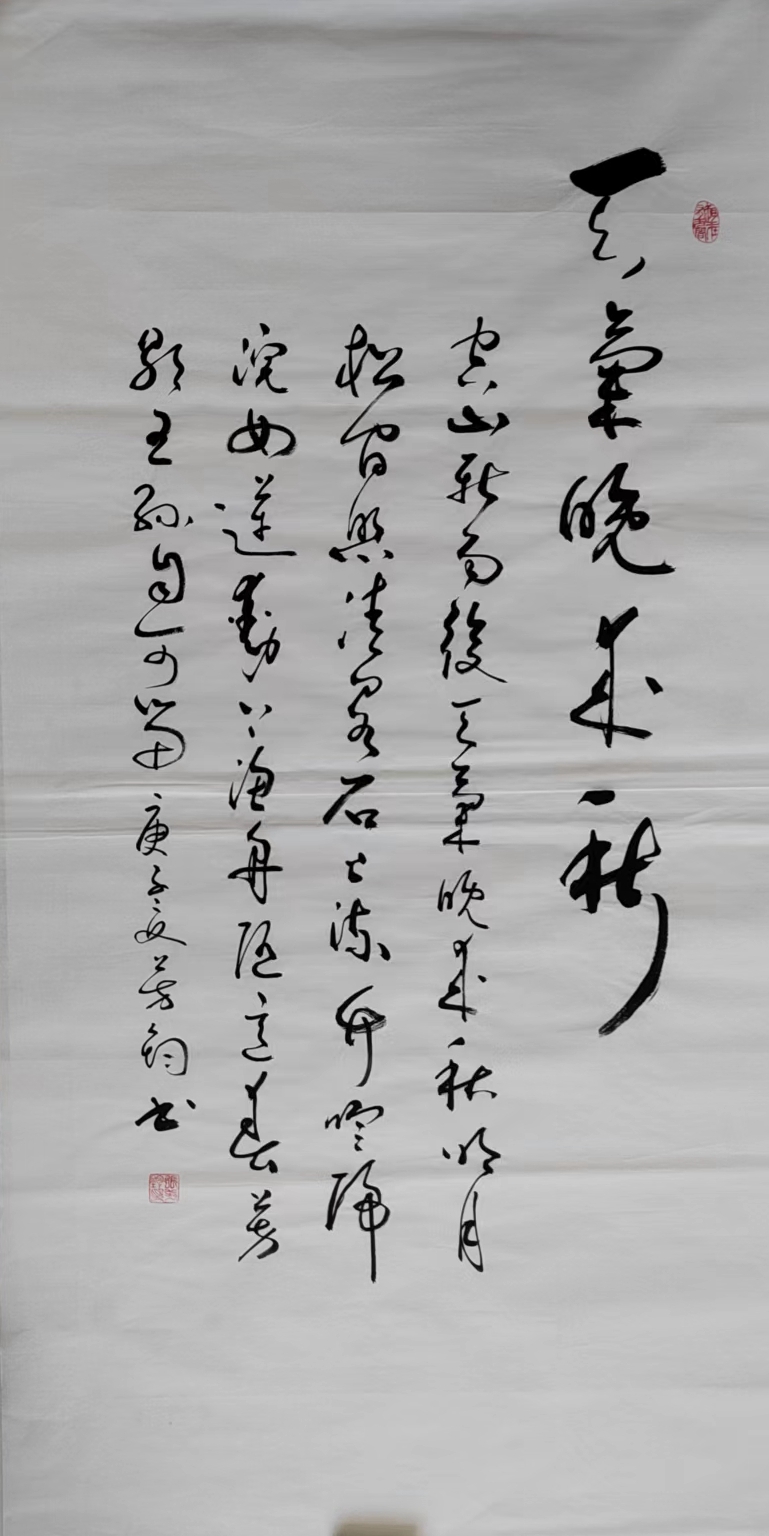 天氣晚來秋
空山新雨後天氣晚來秋明月
松間照清泉石上流竹喧歸
浣女蓮動下漁舟隨意春芳
歇王孫自可留庚子夏芳鈞書